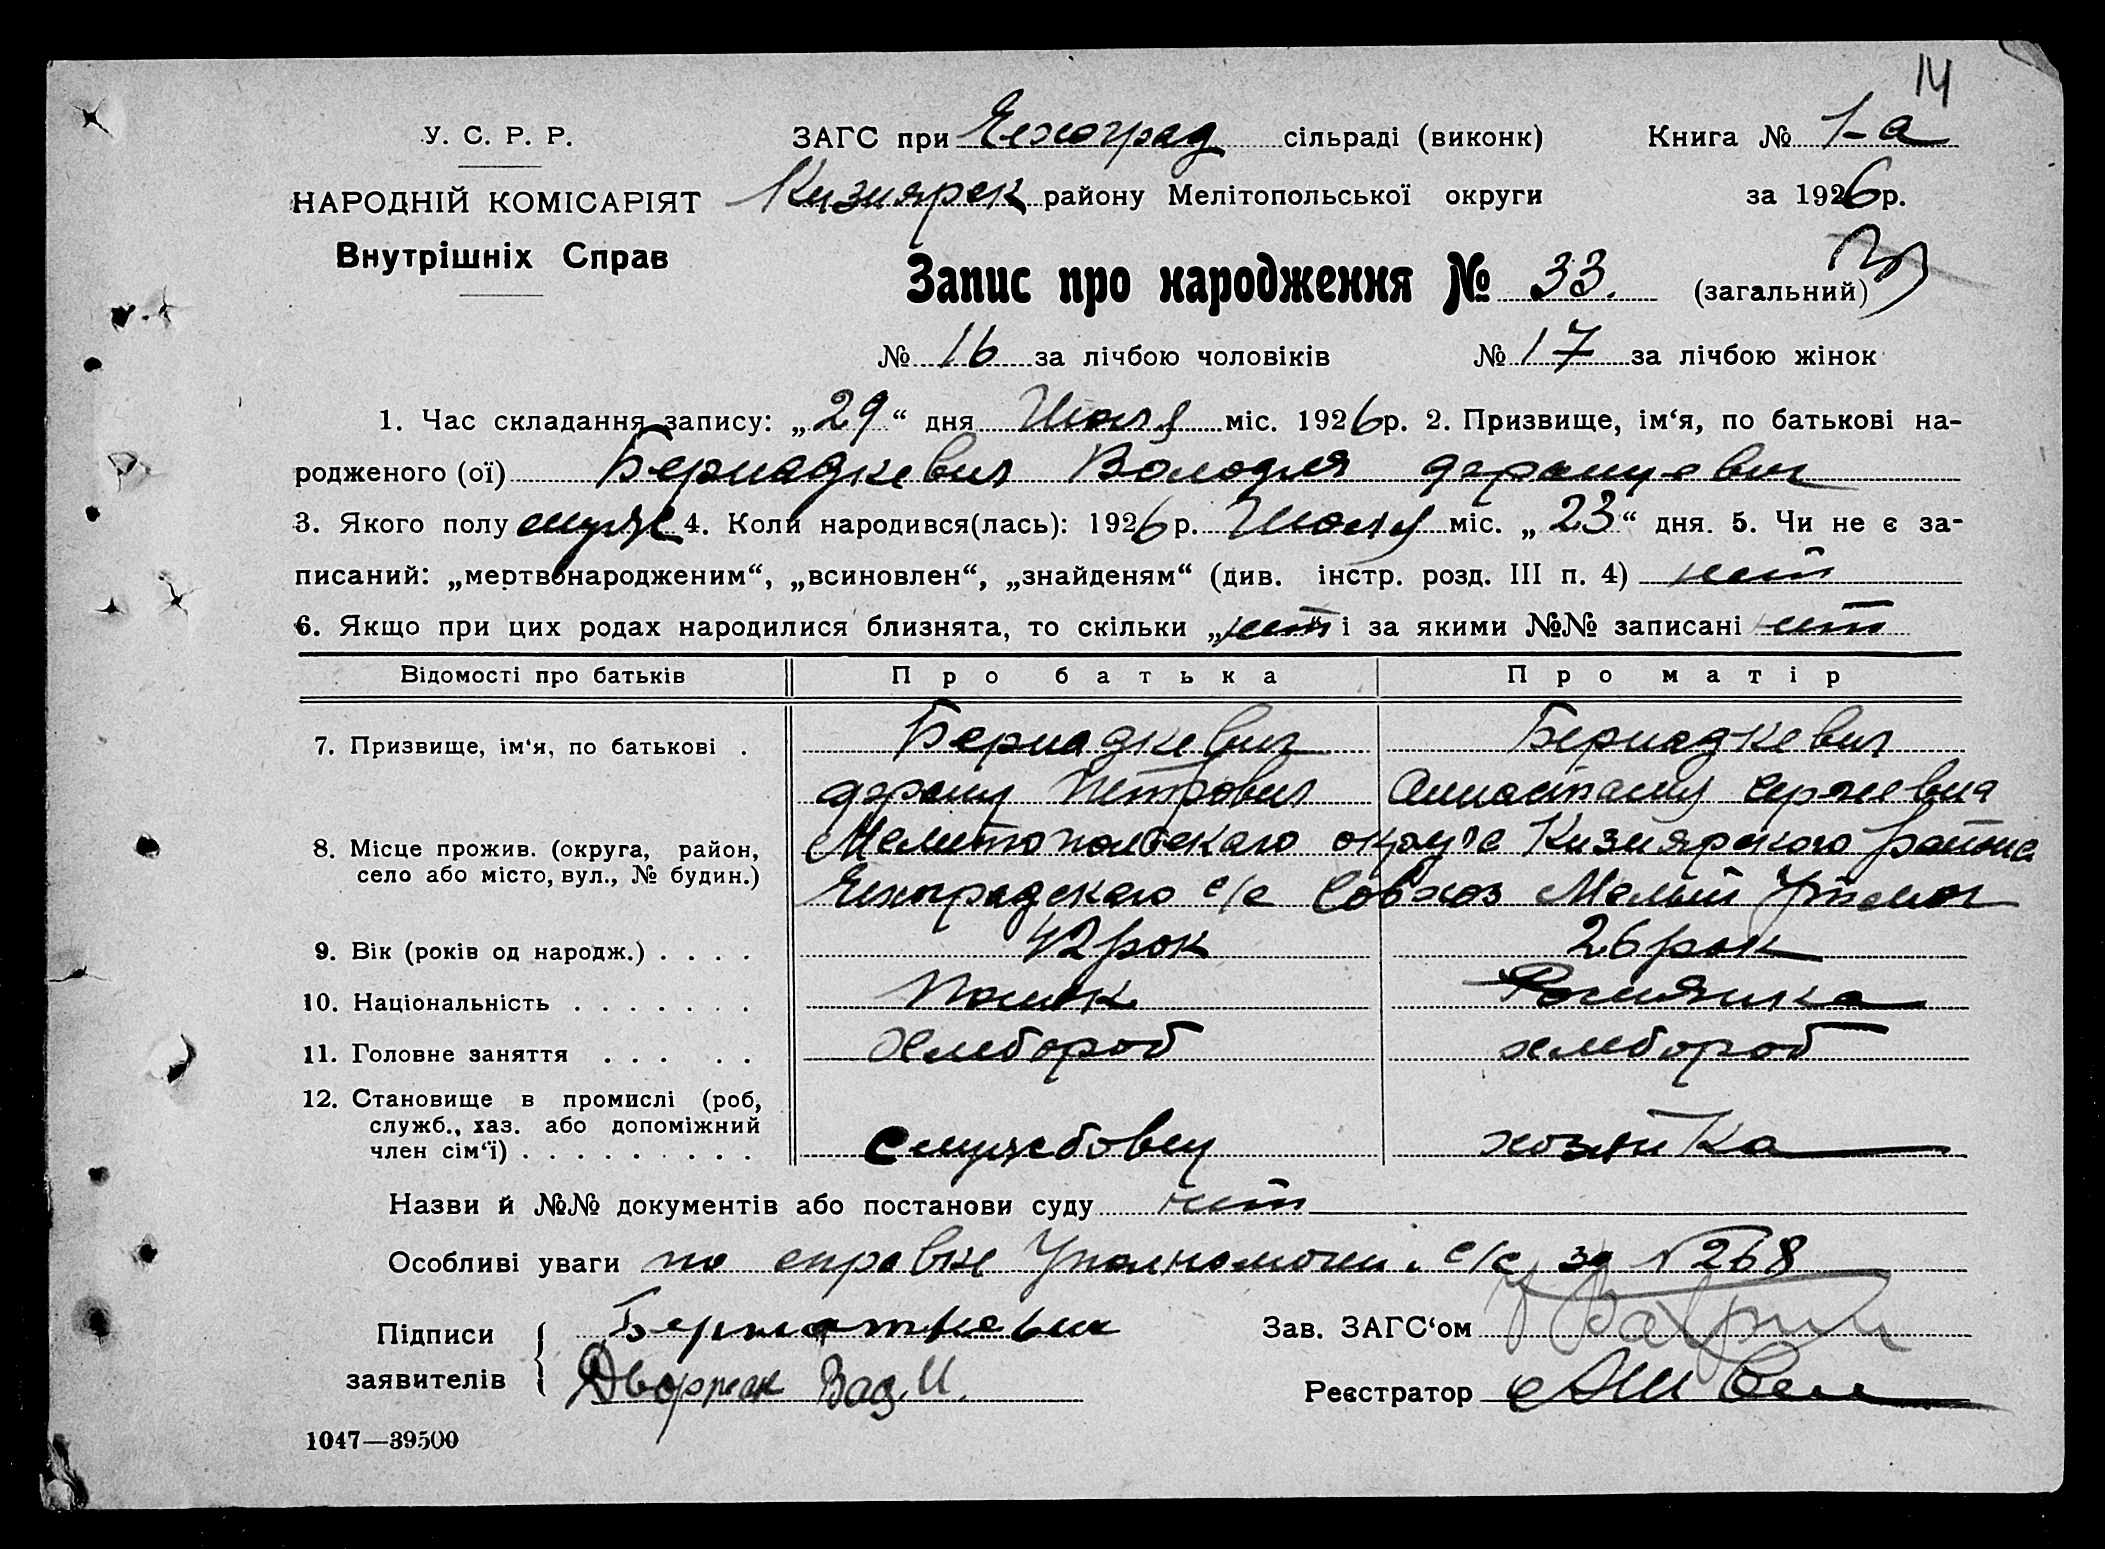 14
У. С. Р. Р.
ЗАГС при Ехеоград сільраді (виконк)
Книга № 1-а
НАРОДНІЙ КОМІСАРІЯТ
Кизиярск району Мелітопольської округи
за 1926 р.
Внутрішніх Справ
Запис про народження № 33. (загальний)
№ 16 за лічбою чоловіків № 17 за лічбою жінок
1. Час складання запису: „29“ дня Июля міс. 1926 р. 2. Призвище, ім‘я, по батькові на-
родженого (ої) Бернадкевич Володя
3. Якого полу муж 4. Коли народився(лась): 1926 р. Июля міс. „23“ дня. 5. Чи не є за-
писаний: „мертвонародженим“, „всиновлен“, „знайденям“ (див. інстр. розд. III п. 4) нет
6. Якщо при цих родах народилися близнята, то скільки „нет“ і за якими №№ записані нет
Відомості про батьків Про батька Про матір
7. Призвище, ім‘я, по батькові . Бернадкевич Бернадкевич
Петрович
8. Місце прожив. (округа, район, Мелитопольскаго округа Кизиярского района
село або місто, вул., № будин.) с/с Совхоз Малый Утлюг
9. Вік (років од народж.) . . . . 42 рок 26 рок
10. Національність . . . . . . . Поляк
11. Головне заняття . . . . . Хлебороб хлебороб
12. Становище в промислі (роб,
служб., хаз. або допоміжний
член сім‘ї) . . . . . . . . . Служебовец хозяйка
Назви й №№ документів або постанови суду нет
Особливі уваги по справке Уполномочен. с/с за № 268
Підписи Бернаткевич Зав. ЗАГС‘ом
заявителів Дворжак Вац. И. Реєстратор
1047—39500